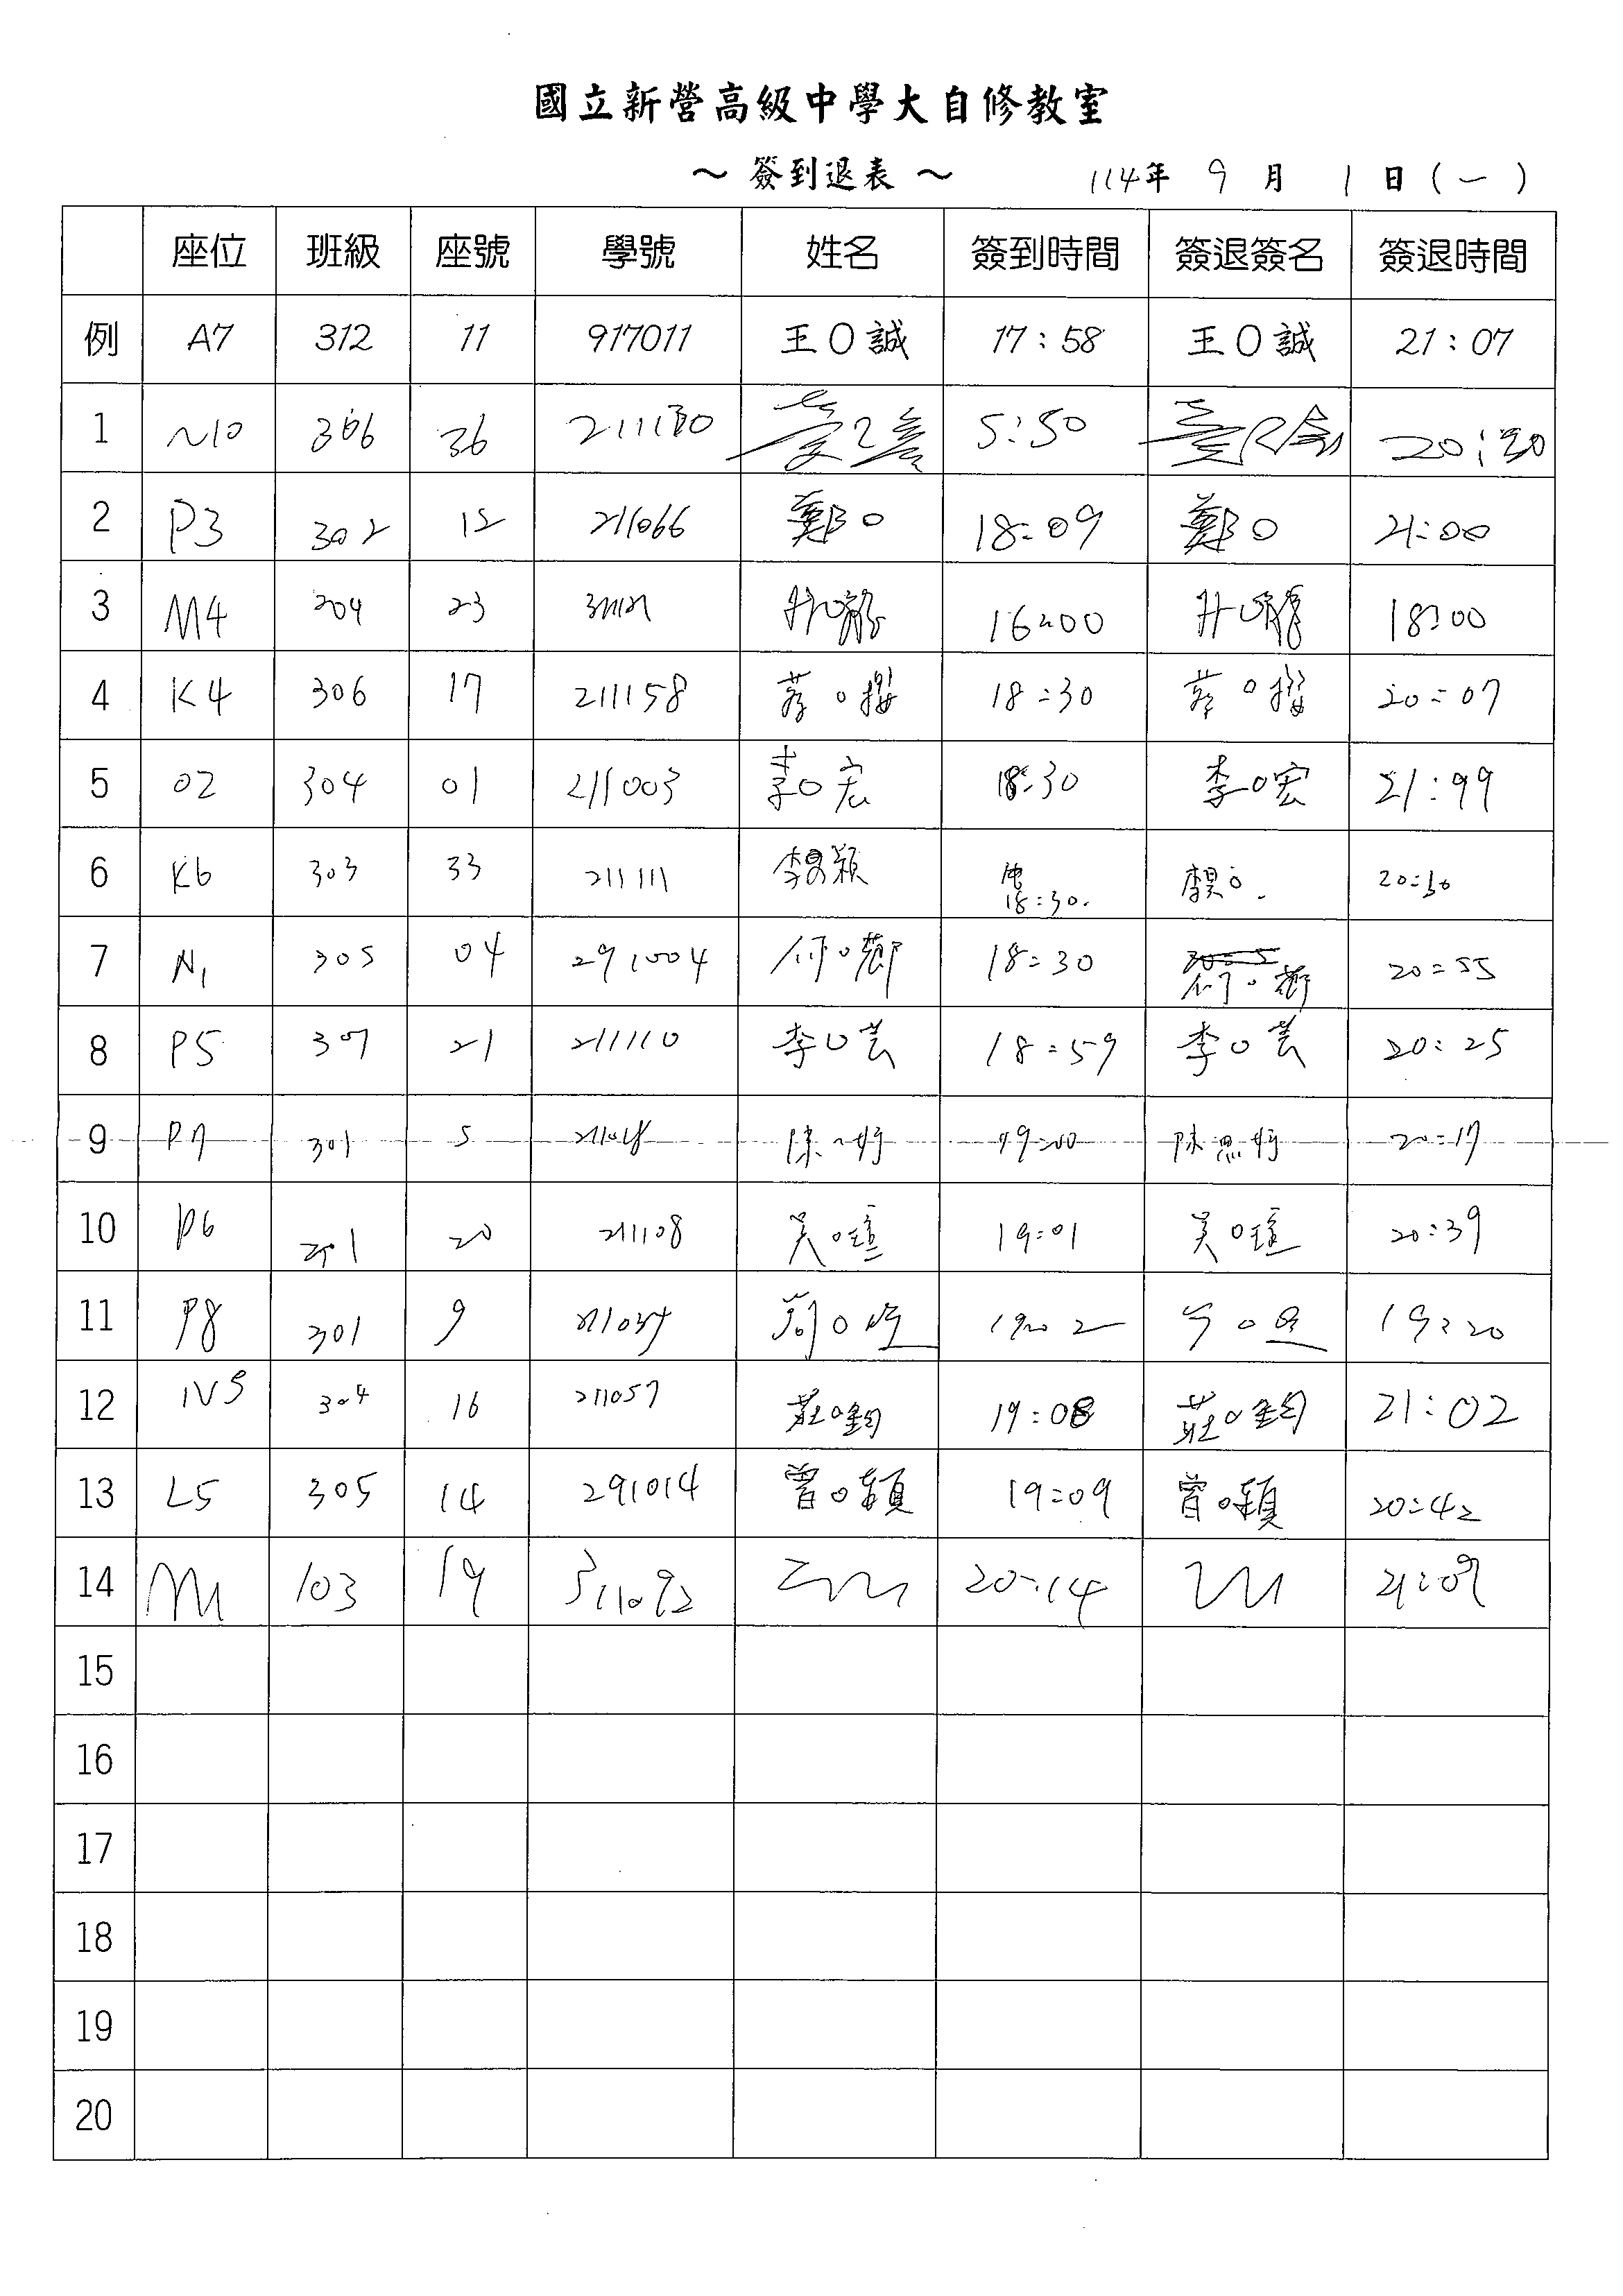 國立新營高級中學大自修教室
～ 簽到退表 ～ 114年 9 月 1 日 ( 一 )
座位 班級 座號 學號 姓名 簽到時間 簽退簽名 簽退時間
例 A7 312 11 917011 王〇誠 17:58 王〇誠 21:07
1 N10 306 36 5:50
2 P3 302 15 211066 鄭〇 18:09 鄭〇 21:00
3 M4 204 23 16:00 18:00
4 K4 306 17 211158 蔡〇櫻 18:30 蔡〇櫻 20:07
5 02 304 01 211003 李〇宏 18:30 李〇宏 21:99
6 K6 303 33 211111 18:30. 20:30
7 N1 305 04 291004 何〇鄒 18:30 20:55
8 P5 307 21 211110 李〇芸 18:59 李〇芸 20:25
9 P7 301 5 陳 19:00 陳 20:17
10 P6 301 20 211108 吳〇瑄 19:01 吳〇瑄 20:39
11 P8 301 9 19:02 19:20
12 N5 304 16 211057 莊〇鈞 19:08 莊〇鈞 21:02
13 L5 305 14 291014 曾〇穎 19:09 曾〇穎 20:42
14 M1 103 19 311092 20:14 21:09
15
16
17
18
19
20